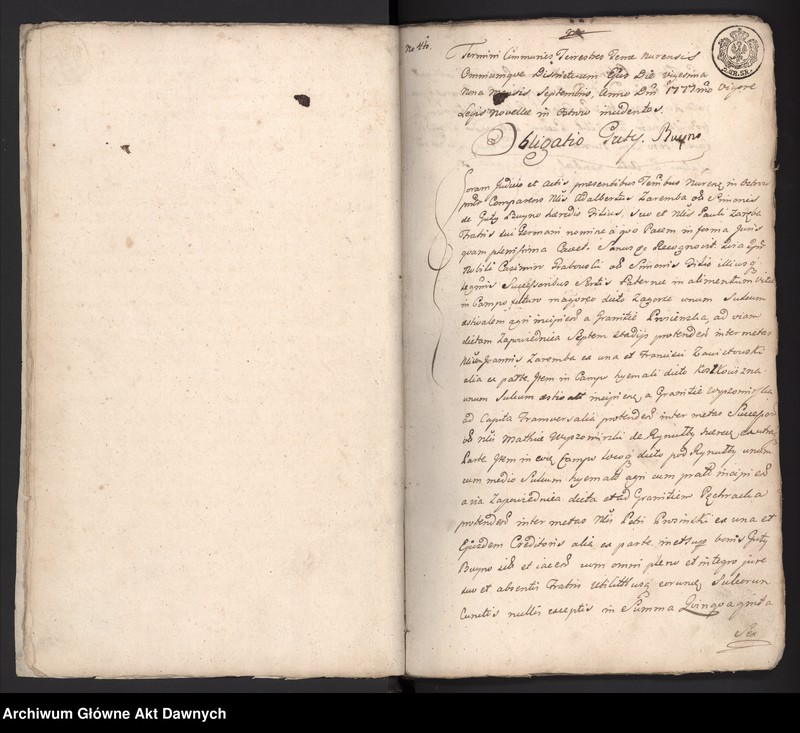 No 46.
Termini Communes Terrestres Terrae Nurensis
Omniumque Districtuum Ejus Die vigesima
nona mensis Septembris, Anno Dni 1777mo vigore
Legis novellae in
Obligatio Guty. Buyno
Coram Judicio et Actis praesentibus Nuren in
Comparens Nlis Adalbertus Zaremba olim Simonis
de Guty Buyno haeredis Filius, Suo et Nlis Pauli Zaręba
Fratris sui Germani nomine a quo Pacem in forma Juris
quam plenissima Cavet. Sanus Recognovit. Quia
Nobili Casimiro Grabowski olim Simonis Filio illiusq
legmis Successoribus Sortis Paternae in
in Campo majores dicto Zagorze unum Sulcum
aestivalem agri incipien a Granitie ad viam
dictam Zapowiednica Septem Stadijs protenden inter metas
Joannis Zaremba ex una et Francisci Zawistowski
alia ex parte. Item in Campo hyemali dicto
unum Sulcum incipien, a Granitie Wyszomirska
ad Capita Transversalia protenden inter metas Successor
olim Nlis Mathiae Wyszomirski de Rynołty haered ex utraq
Parte. Item in Campo dicto pod Rynołty unum
cum medio Sulcum hyemalem agri cum prato incipien
a via Zapowiednica dicta et ad Granitiem Pęchracka
protenden inter metas Nlis Petri ex una et
Ejusdem Creditoris alia ex parte in bonis Guty
Buyno sit et iacen cum omni pleno et integro jure
suo et absentis Fratris Sulcorum
Cunctis nullis exceptis in Summa Quinquaginta
Sex
2.GR.SR.
Archiwum Główne Akt Dawnych